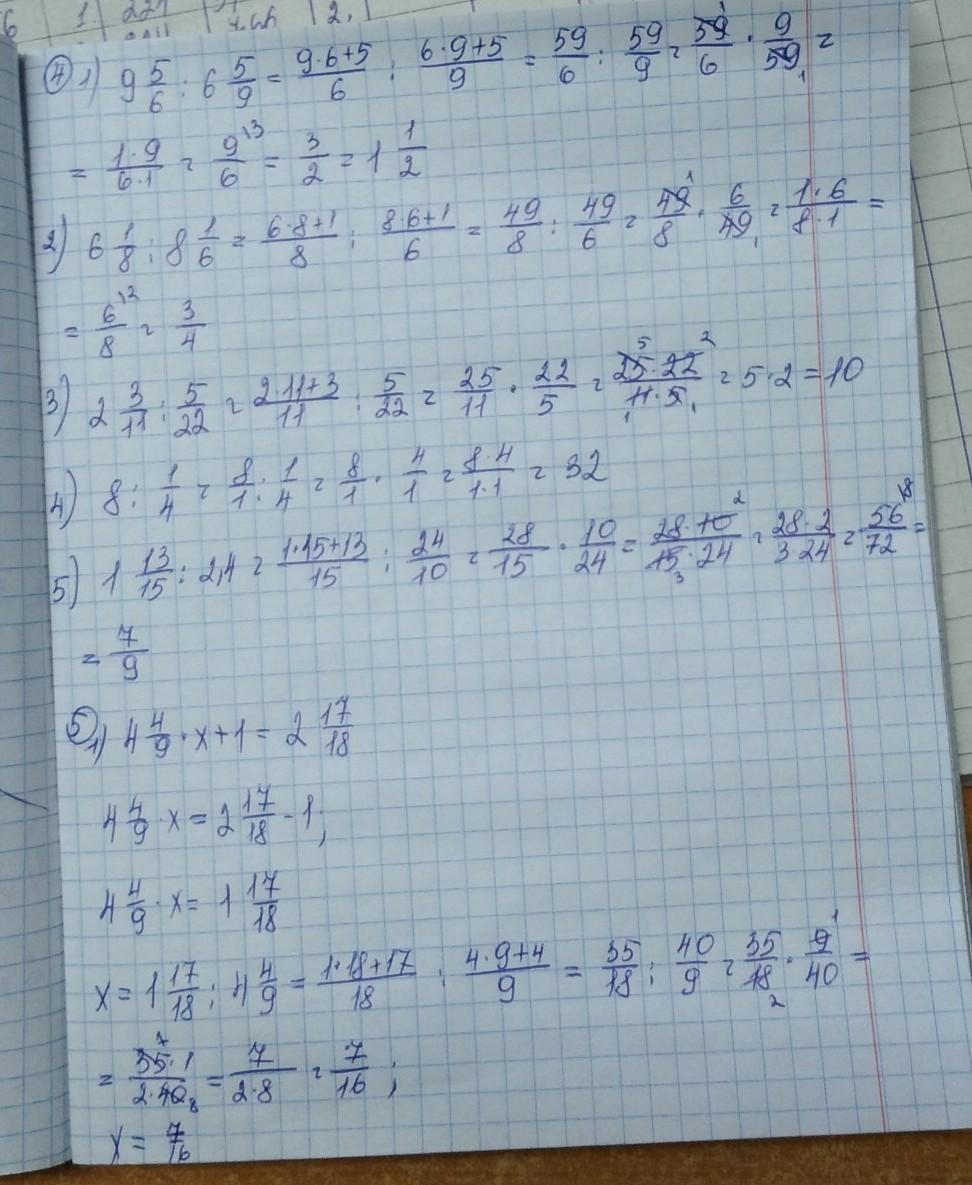 ④ 1) 9 5/6 : 6 5/9 = (9·6+5)/6 : (6·9+5)/9 = 59/6 : 59/9 = 59/6 · 9/59 =
= (1·9)/(6·1) = 9/6 |3 = 3/2 = 1 1/2
2) 6 1/8 : 8 1/6 = (6·8+1)/8 : (8·6+1)/6 = 49/8 : 49/6 = 49/8 · 6/49 = (1·6)/(8·1) =
= 6/8 |2 = 3/4
3) 2 3/11 : 5/22 = (2·11+3)/11 : 5/22 = 25/11 · 22/5 = (25·22)/(11·5) = 5·2 = 10
4) 8 : 1/4 = 8/1 : 1/4 = 8/1 · 4/1 = (8·4)/(1·1) = 32
5) 1 13/15 : 2,4 = (1·15+13)/15 : 24/10 = 28/15 · 10/24 = (28·10)/(15·24) = (28·2)/(3·24) = 56/72 |8 =
= 7/9
⑤ 1) 4 4/9 · x + 1 = 2 17/18
4 4/9 · x = 2 17/18 - 1;
4 4/9 · x = 1 17/18
x = 1 17/18 : 4 4/9 = (1·18+17)/18 : (4·9+4)/9 = 35/18 : 40/9 = 35/18 · 9/40 =
= (35·1)/(2·40) = 7/(2·8) = 7/16 ;
x = 7/16